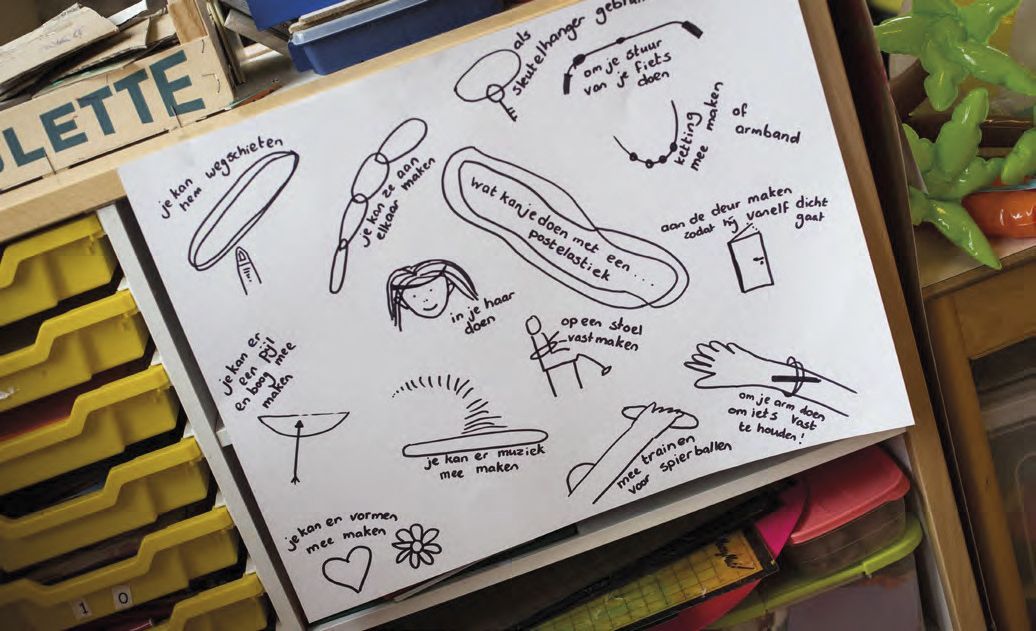 ULETTE
als
sleutelhanger
om je stuur
van je fiets
doen
ketting maken
mee
of
armband
je kan
hem wegschieten
je kan ze aan
elkaar
maken
wat kan je doen met een...
postelastiek
aan de deur maken
zodat hij vanelf dicht
gaat
in je haar
doen
op een stoel
vastmaken
je kan er
een pijl
en boog mee
maken
je kan er muziek
mee maken
mee trainen
voor spierballen
om je arm doen
om iets vast
te houden!
je kan er vormen
mee maken
1 0